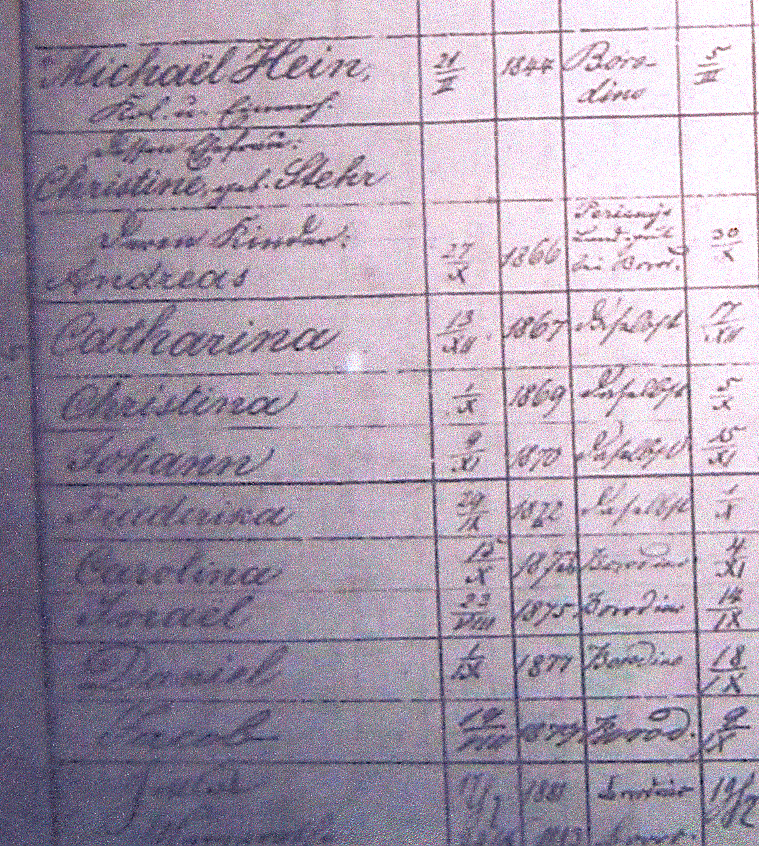 Michael Hein, 21/II 1844 Boro- 5/III
Kol. u. dino
Dessen Ehefrau:
Christine, geb. Stehr
Deren Kinder:
Andreas 27/X 1866 bei Borod. 30/X
Catharina 13/XII 1867 Daselbst 17/XII
Christina 1/X 1869 Daselbst 5/X
Johann 9/XI 1870 Daselbst 15/XI
Friederika 29/IX 1872 Daselbst 1/X
Carolina 15/X Borodino 4/XI
Israel 23/VIII 1875 Borodino 14/IX
Daniel 1/IX 1877 Borodino 18/IX
Jacob 19/VIII 1879 Borod. 9/IX
1881 Borodino